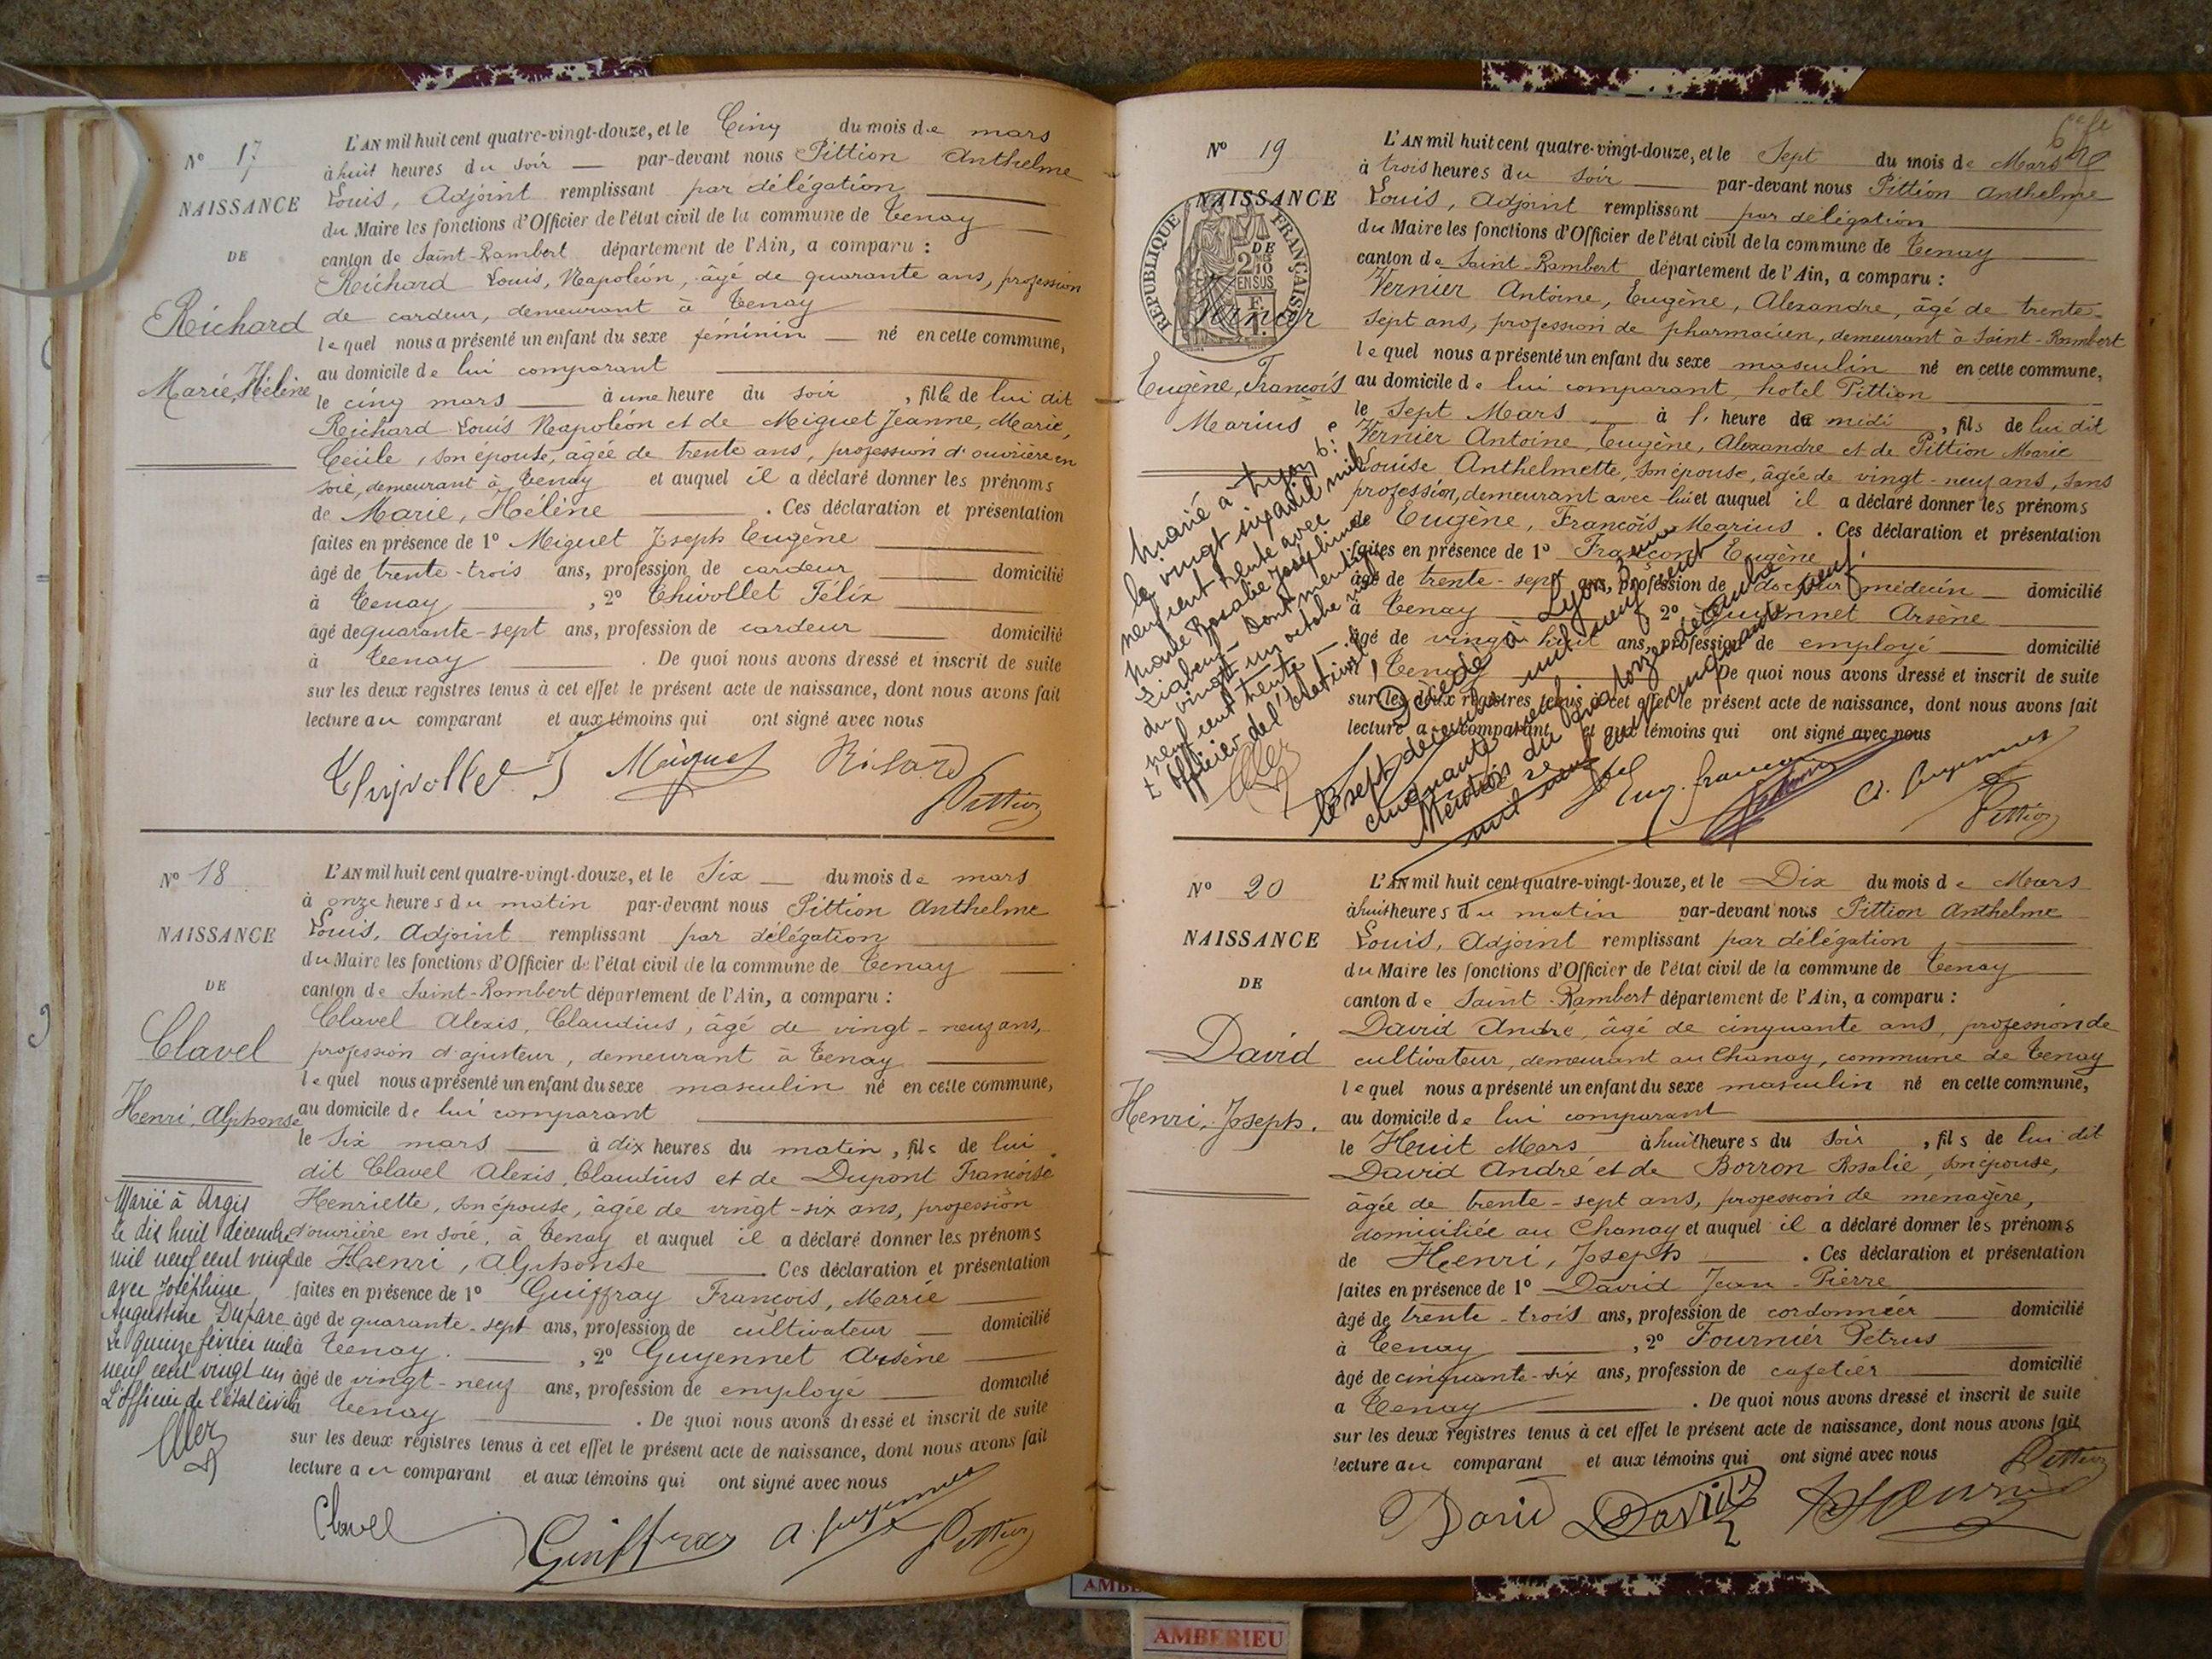 N° 17
NAISSANCE
DE
Richard
Marie, Hélène
L'AN mil huit cent quatre-vingt-douze, et le Cinq du mois de mars
à huit heures du soir — par-devant nous Pittion Anthelme
Louis, Adjoint remplissant par délégation
du Maire les fonctions d'Officier de l'état civil de la commune de Tenay
canton de Saint-Rambert département de l'Ain, a comparu :
Richard Louis, Napoléon, âgé de quarante ans, profession
de cardeur, demeurant à Tenay
lequel nous a présenté un enfant du sexe féminin — né en cette commune,
au domicile de lui comparant
le cinq mars — à une heure du soir, fille de lui dit
Richard Louis Napoléon et de Miguet Jeanne, Marie,
Cécile, son épouse, âgée de trente ans, profession d'ouvrière en
soie, demeurant à Tenay et auquel il a déclaré donner les prénoms
de Marie, Hélène . Ces déclaration et présentation
faites en présence de 1° Miguet Joseph Eugène
âgé de trente-trois ans, profession de cardeur domicilié
à Tenay , 2° Thivollet Félix
âgé de quarante-sept ans, profession de cardeur domicilié
à Tenay . De quoi nous avons dressé et inscrit de suite
sur les deux registres tenus à cet effet le présent acte de naissance, dont nous avons fait
lecture au comparant et aux témoins qui ont signé avec nous
Miguet Pittion
N° 18
NAISSANCE
DE
Clavel
Henri, Alphonse
Marié à Argis
le dix huit décembre
mil neuf cent vingt
avec Joséphine
Augustine Duparc
Le quinze février mil
neuf cent vingt un
L'officier de l'état civil
L'AN mil huit cent quatre-vingt-douze, et le Six — du mois de mars
à onze heures du matin par-devant nous Pittion Anthelme
Louis, Adjoint remplissant par délégation
du Maire les fonctions d'Officier de l'état civil de la commune de Tenay
canton de Saint-Rambert département de l'Ain, a comparu :
Clavel Alexis, Claudius, âgé de vingt-neuf ans,
profession d'ajusteur, demeurant à Tenay
lequel nous a présenté un enfant du sexe masculin né en cette commune,
au domicile de lui comparant
le six mars — à dix heures du matin, fils de lui
dit Clavel Alexis, Claudius et de Dupont Françoise
Henriette, son épouse, âgée de vingt-six ans, profession
d'ouvrière en soie, à Tenay et auquel il a déclaré donner les prénoms
de Henri, Alphonse . Ces déclaration et présentation
faites en présence de 1° Guiffray François, Marie
âgé de quarante-sept ans, profession de cultivateur — domicilié
à Tenay , 2° Guyennet Arsène
âgé de vingt-neuf ans, profession de employé domicilié
à Tenay . De quoi nous avons dressé et inscrit de suite
sur les deux registres tenus à cet effet le présent acte de naissance, dont nous avons fait
lecture au comparant et aux témoins qui ont signé avec nous
Clavel Guiffray A. Guyennet Pittion
N° 19
NAISSANCE
DE
RÉPUBLIQUE FRANÇAISE
Vernier
Eugène, François
Marius
Marié à Lyon 6e
le vingt six avril mil
neuf cent trente avec
Marie Rosalie Joséphine
Dont mention
du vingt un octobre mil
neuf cent trente
officier de l'état civil
Décédé à Lyon
le sept décembre mil neuf cent
cinquante neuf
Mention du quatorze décembre
mil neuf cent cinquante neuf
L'AN mil huit cent quatre-vingt-douze, et le Sept du mois de Mars
à trois heures du soir — par-devant nous Pittion Anthelme
Louis, Adjoint remplissant par délégation
du Maire les fonctions d'Officier de l'état civil de la commune de Tenay
canton de Saint-Rambert département de l'Ain, a comparu :
Vernier Antoine, Eugène, Alexandre, âgé de trente-
sept ans, profession de pharmacien, demeurant à Saint-Rambert
lequel nous a présenté un enfant du sexe masculin né en cette commune,
au domicile de lui comparant, hotel Pittion
le Sept Mars à 1. heure de midi, fils de lui dit
Vernier Antoine, Eugène, Alexandre et de Pittion Marie
Louise Anthelmette, son épouse, âgée de vingt-neuf ans, sans
profession, demeurant avec lui et auquel il a déclaré donner les prénoms
de Eugène, François, Marius . Ces déclaration et présentation
faites en présence de 1° Françon Eugène
âgé de trente-sept ans, profession de docteur médecin — domicilié
à Tenay 2° Guyennet Arsène
âgé de vingt huit ans, profession de employé domicilié
à Tenay De quoi nous avons dressé et inscrit de suite
sur les deux registres tenus à cet effet le présent acte de naissance, dont nous avons fait
lecture au comparant et aux témoins qui ont signé avec nous
A. Guyennet Pittion
N° 20
NAISSANCE
DE
David
Henri, Joseph.
L'AN mil huit cent quatre-vingt-douze, et le Dix du mois de Mars
à huit heures du matin par-devant nous Pittion Anthelme
Louis, Adjoint remplissant par délégation
du Maire les fonctions d'Officier de l'état civil de la commune de Tenay
canton de Saint-Rambert département de l'Ain, a comparu :
David André, âgé de cinquante ans, profession de
cultivateur, demeurant au Chanay, commune de Tenay
lequel nous a présenté un enfant du sexe masculin né en cette commune,
au domicile de lui comparant
le Huit Mars à huit heures du soir, fils de lui dit
David André et de Borron Rosalie, son épouse,
âgée de trente-sept ans, profession de menagère,
domiciliée au Chanay et auquel il a déclaré donner les prénoms
de Henri, Joseph . Ces déclaration et présentation
faites en présence de 1° David Jean-Pierre
âgé de trente-trois ans, profession de cordonnier domicilié
à Tenay , 2° Fournier Petrus
âgé de cinquante-six ans, profession de cafetier domicilié
à Tenay . De quoi nous avons dressé et inscrit de suite
sur les deux registres tenus à cet effet le présent acte de naissance, dont nous avons fait
lecture au comparant et aux témoins qui ont signé avec nous
Pittion
David David Fournier
AMBERIEU